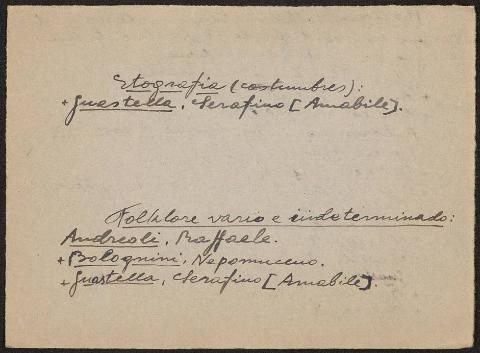 Etografia (costumbres):
+ Guastella, Serafino [Amabile].
Folklore vario e indeterminado:
Andreoli, Raffaele.
+ Bolognini, Nepomuceno.
+ Guastella, Serafino [Amabile].